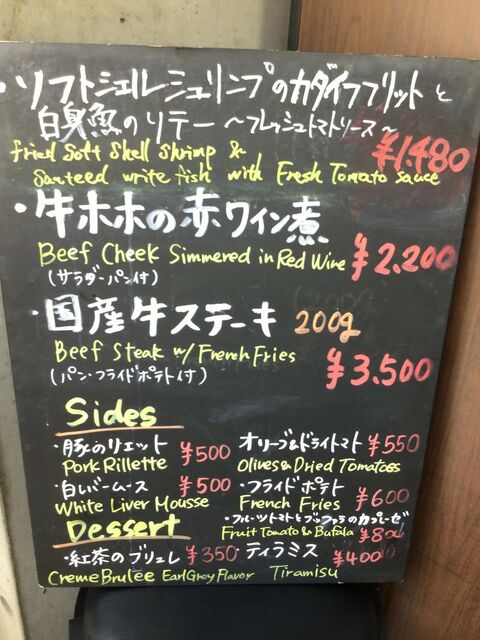 ・ソフトシェルシュリンプのカダイフフリットと
白身魚のソテー 〜フレッシュトマトソース〜
Fried Soft Shell Shrimp & ¥1.480
Santeed write fish with Fresh Tomato sauce
・牛ホホの赤ワイン煮
Beef Cheek Simmered in Red Wine ¥2.200
(サラダ・パン付)
・国産牛ステーキ 200g
Beef Steak w/ French Fries
(パン・フライドポテト付) ¥3.500
Sides
・豚のリエット ¥500
Pork Rillette
・白レバームース ¥500
White Liver Mousse
オリーブ&ドライトマト ¥550
Olives & Dried Tomatoss
・フライドポテト
French Fries ¥600
・フルーツトマトとブッファラのカプレーゼ
Fruit Tomato & Bufala
Dessert
・紅茶のブリュレ ¥350
Creme Brulee Earl Grey Flavor
ティラミス ¥400
Tiramisu